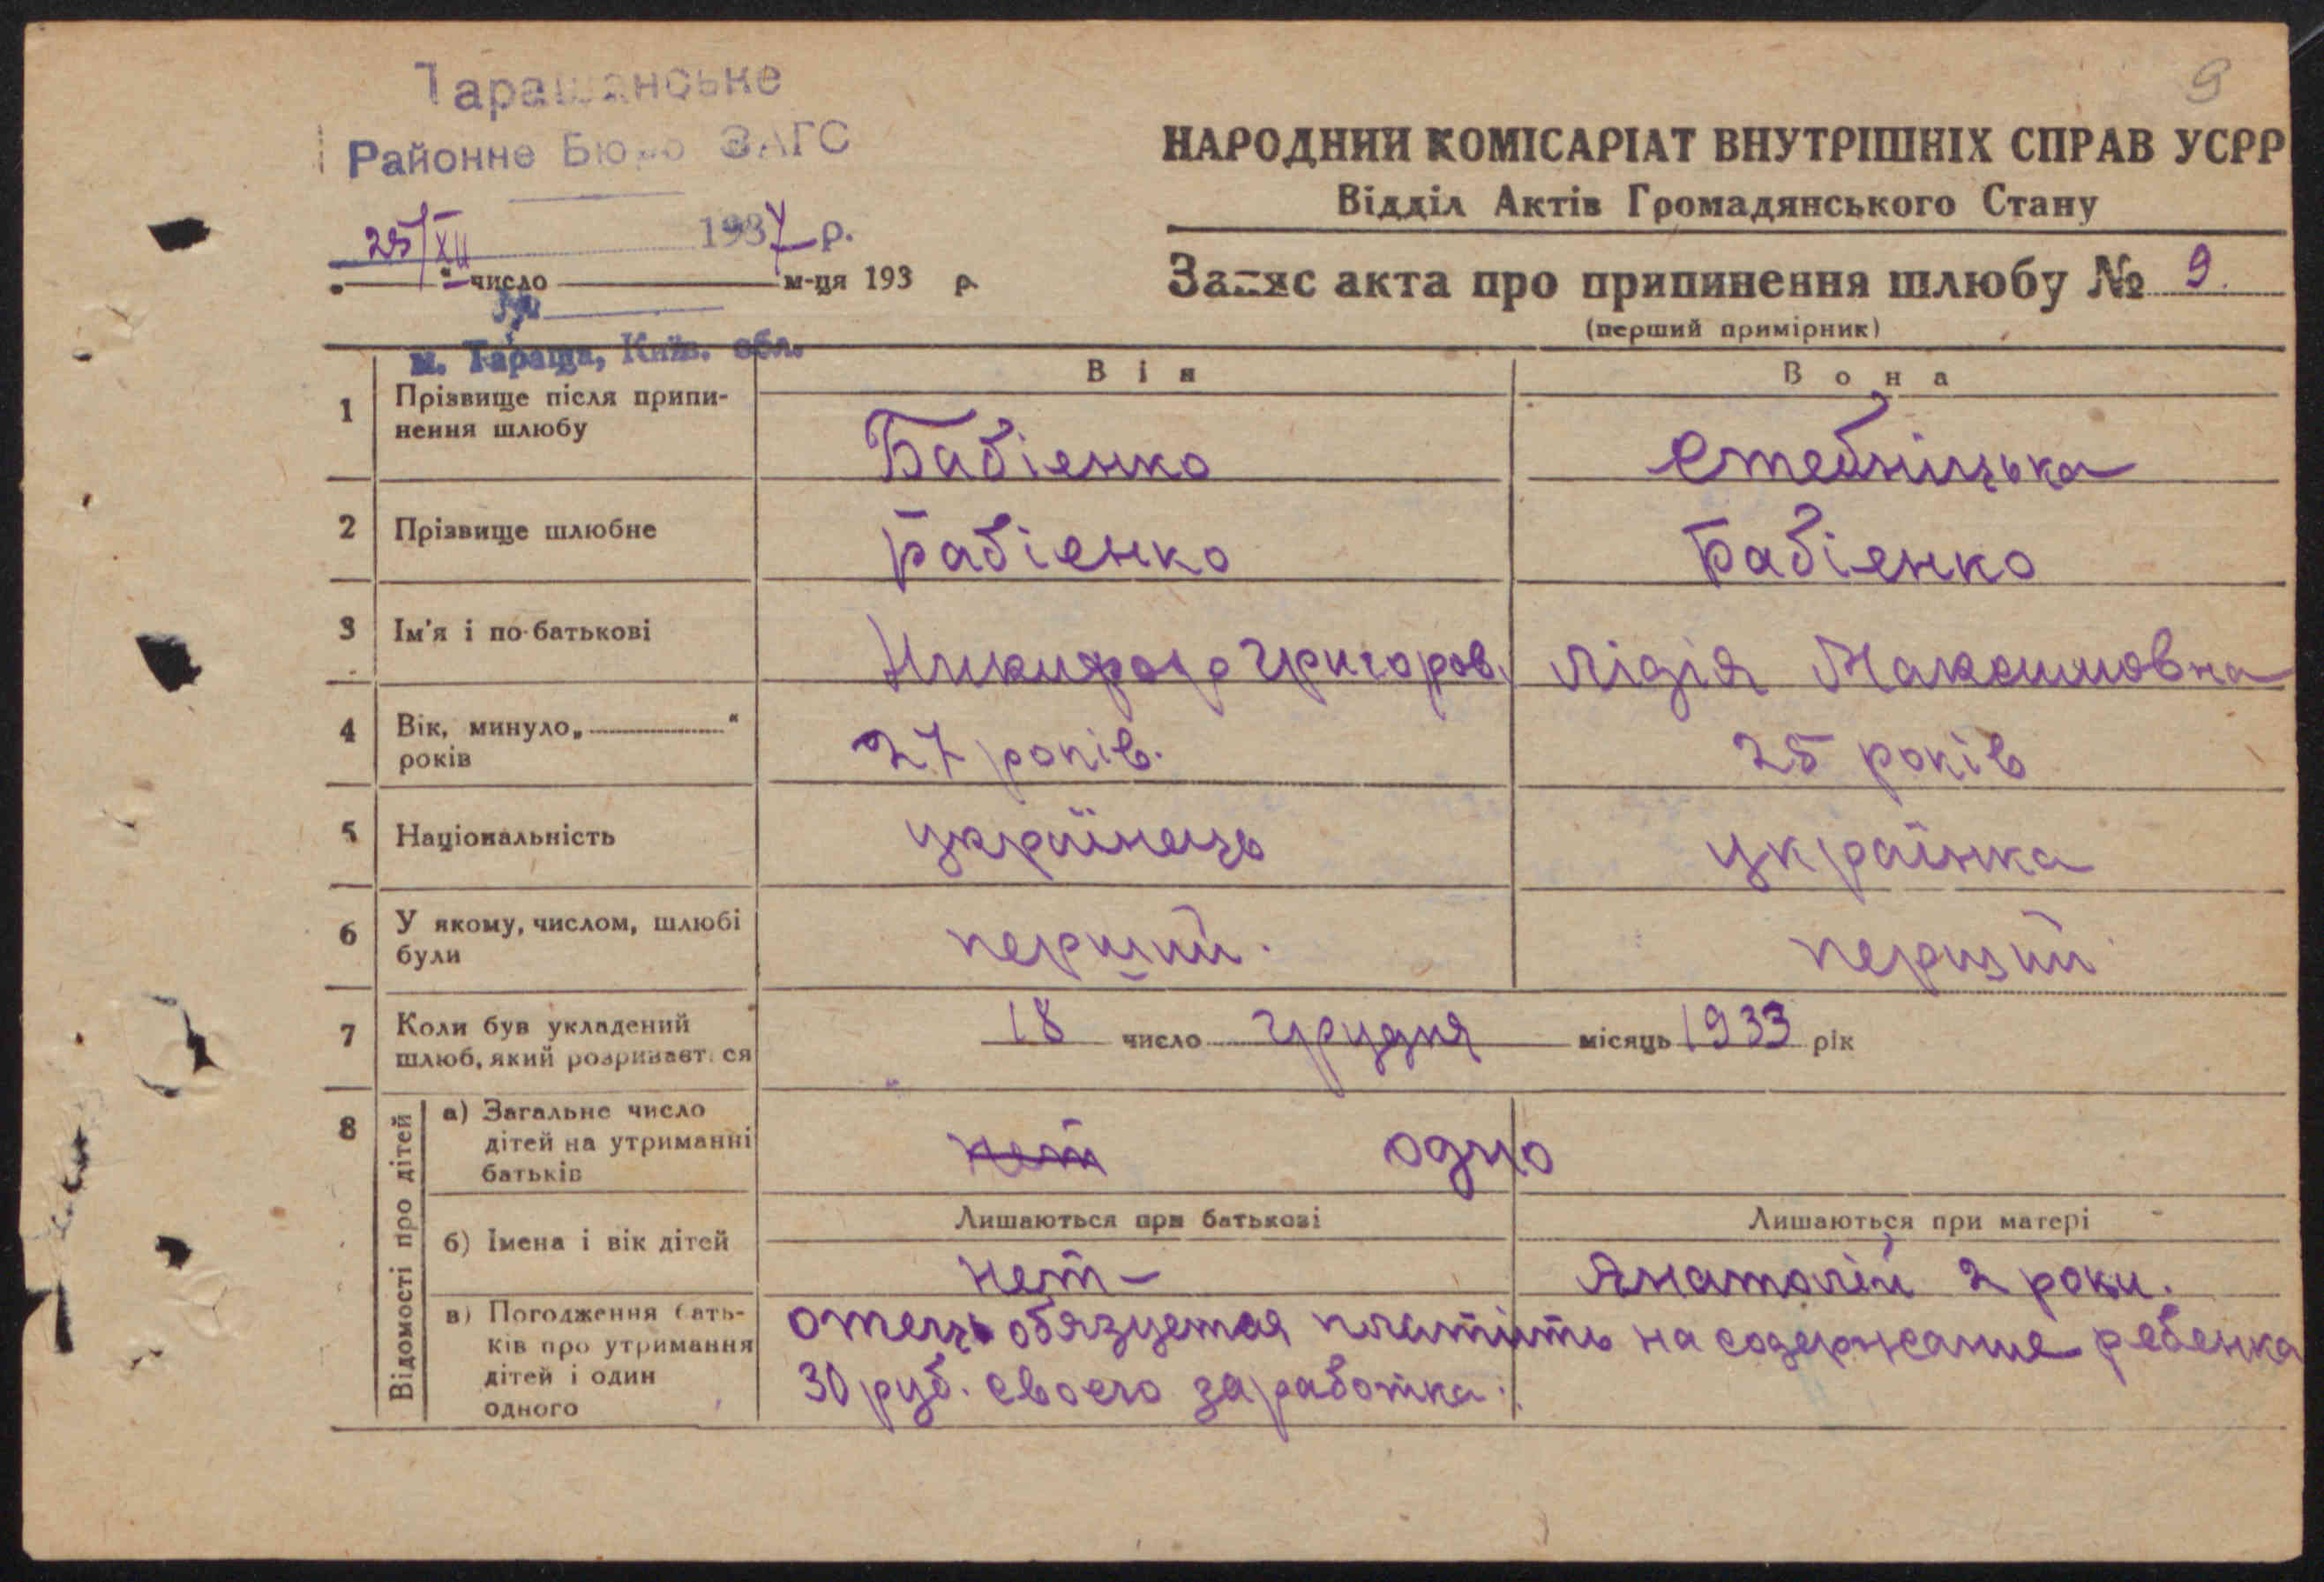 9
Таращанське
Районне Бюро ЗАГС
25/XII 1937 р.
число м-ця 193 р.
м. Тараща, Київ. обл.
НАРОДНИЙ КОМІСАРІАТ ВНУТРІШНІХ СПРАВ УСРР
Відділ Актів Громадянського Стану
Запис акта про припинення шлюбу № 9.
(перший примірник)
Він Вона
1 Прізвище після припи-
нення шлюбу
Бабіенко Стебніцька
2 Прізвище шлюбне Бабіенко Бабіенко
3 Ім'я і по-батькові Никифор Григоров. Лідія Максимовна
4 Вік, минуло „ “
років
27 років. 25 років
5 Національність українець українка
6 У якому, числом, шлюбі
були
перший. перший
7 Коли був укладений
шлюб, який розривається
18 число Грудня місяць 1933 рік
8 Відомості про дітей
а) Загальне число
дітей на утриманні
батьків
нет одно
Лишаються при батькові Лишаються при матері
б) Імена і вік дітей
нет – Анатолій 2 роки.
в) Погодження бать-
ків про утримання
дітей і один
одного
отець обязуетая платіть на содержание ребенка
30 руб. своего заработка.